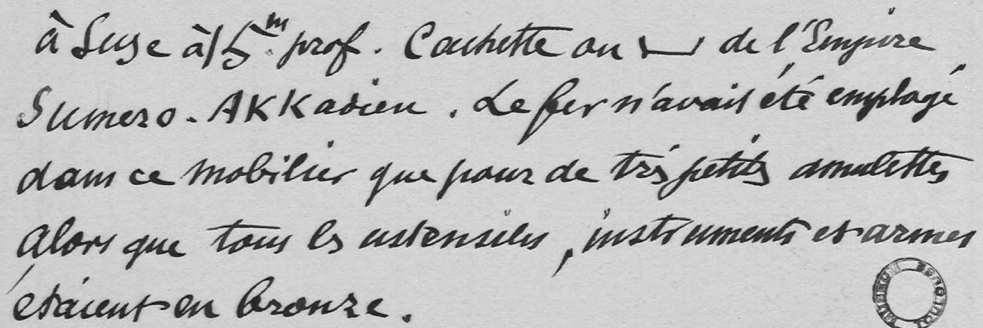 à Suse à 15 m prof. Cachette au de l'Empire
Sumero-Akkadien. Le fer n'avait été employé
dans ce mobilier que pour de très petits amulettes
alors que tous les ustensiles, instruments et armes
étaient en bronze.